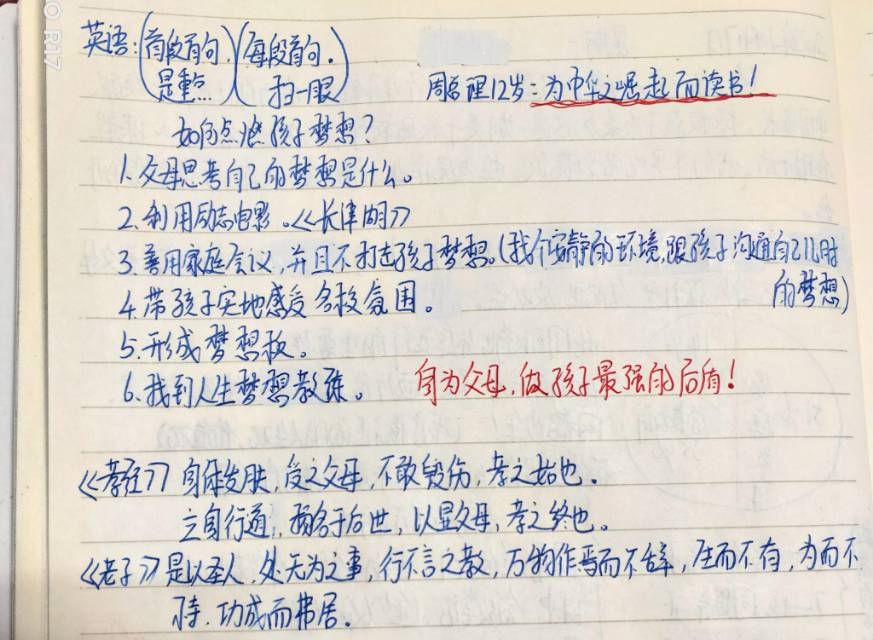 英语:(首段首句是重点)(每段首句.扫一眼)
周总理12岁:为中华之崛起而读书!
如何点燃孩子梦想?
1.父母思考自己的梦想是什么。
2.利用励志电影。《长津湖》
3.善用家庭会议,并且不打击孩子梦想。(找个安静的环境,跟孩子沟通自己儿时的梦想)
4.带孩子实地感受名校氛围。
5.形成梦想板。
6.找到人生梦想教练。
身为父母,做孩子最强的后盾!
《孝经》身体发肤,受之父母,不敢毁伤,孝之始也.
立身行道,扬名于后世,以显父母,孝之终也。
《老子》是以圣人,处无为之事,行不言之教,万物作焉而不辞,生而不有,为而不
恃,功成而弗居。
R17